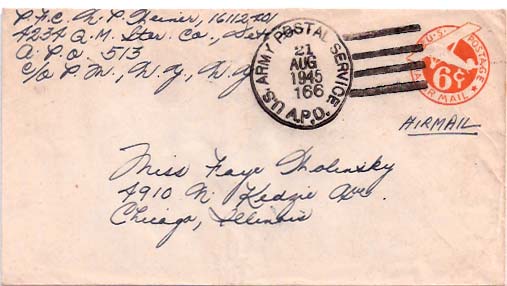 P.F.C. N. P. Weiner,
4234 Q.M. Ster. Co.,
A.P.O. 513
c/o P.M., N.Y., N.Y.
U.S. ARMY POSTAL SERVICE
21
AUG
1945
166
A.P.O.
U.S. POSTAGE
6¢
AIR MAIL
AIRMAIL
Miss Faye Molinsky
4910 N. Kedzie Ave.
Chicago, Illinois